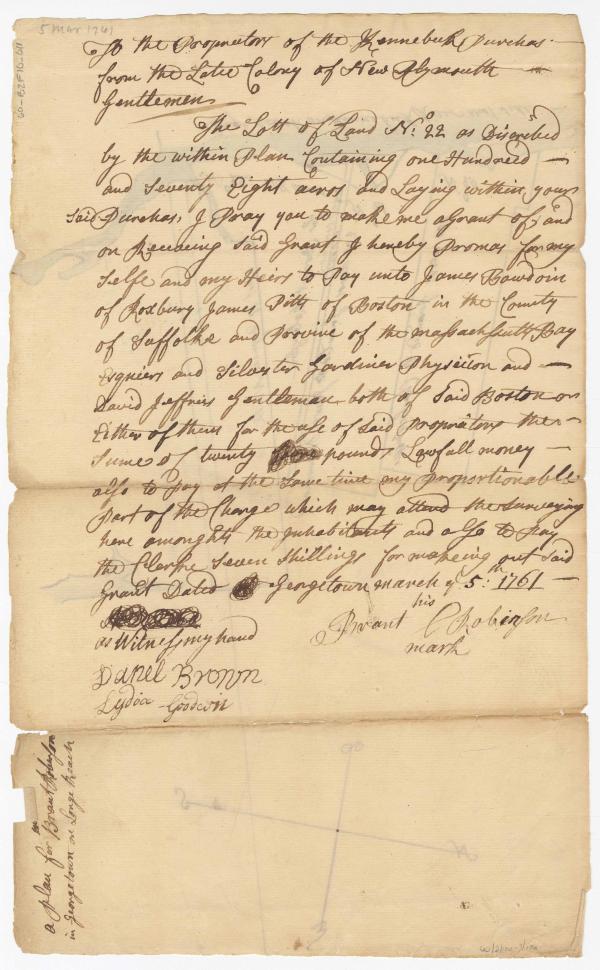 5 Mar 1761
To the Proprietors of the Kennebeck Purchas
from the Late Colony of New Plymouth
Gentlemen
The Lott of Land No: 22 as Discribed
by the within Plan Containing one Hundred
and Seventy Eight acros and Laying within your
Said Purchas, I Pray you to make me a Grant of, and
on Receiving Said Grant I hereby Promas for my
Selfe and my Heirs to Pay unto James Bowdoin
of Roxbury James Pitts of Boston in the County
of Suffolke and Provine of the Massachusetts Bay
Esquiers and Silvester Gardiner Physition and
David Jeffries Gentleman both of Said Boston or
Either of them for the use of Said Proprietors the
Sume of twenty pounds Lawfull money
also to pay at the Same time my Proportionable
Part of the Charge which may attend the Surveying
here amonghts the Inhabitants and also to Pay
the Clerke Seven Shillings for makeing out Said
Grant Dated Georgetown march ye 5th: 1761
as Witness my hand
his
Brant Robinson
mark
Danel Brown
Lydia Goodwin
a Plan for Brant Robinson
in Georgetown on Longe Reach